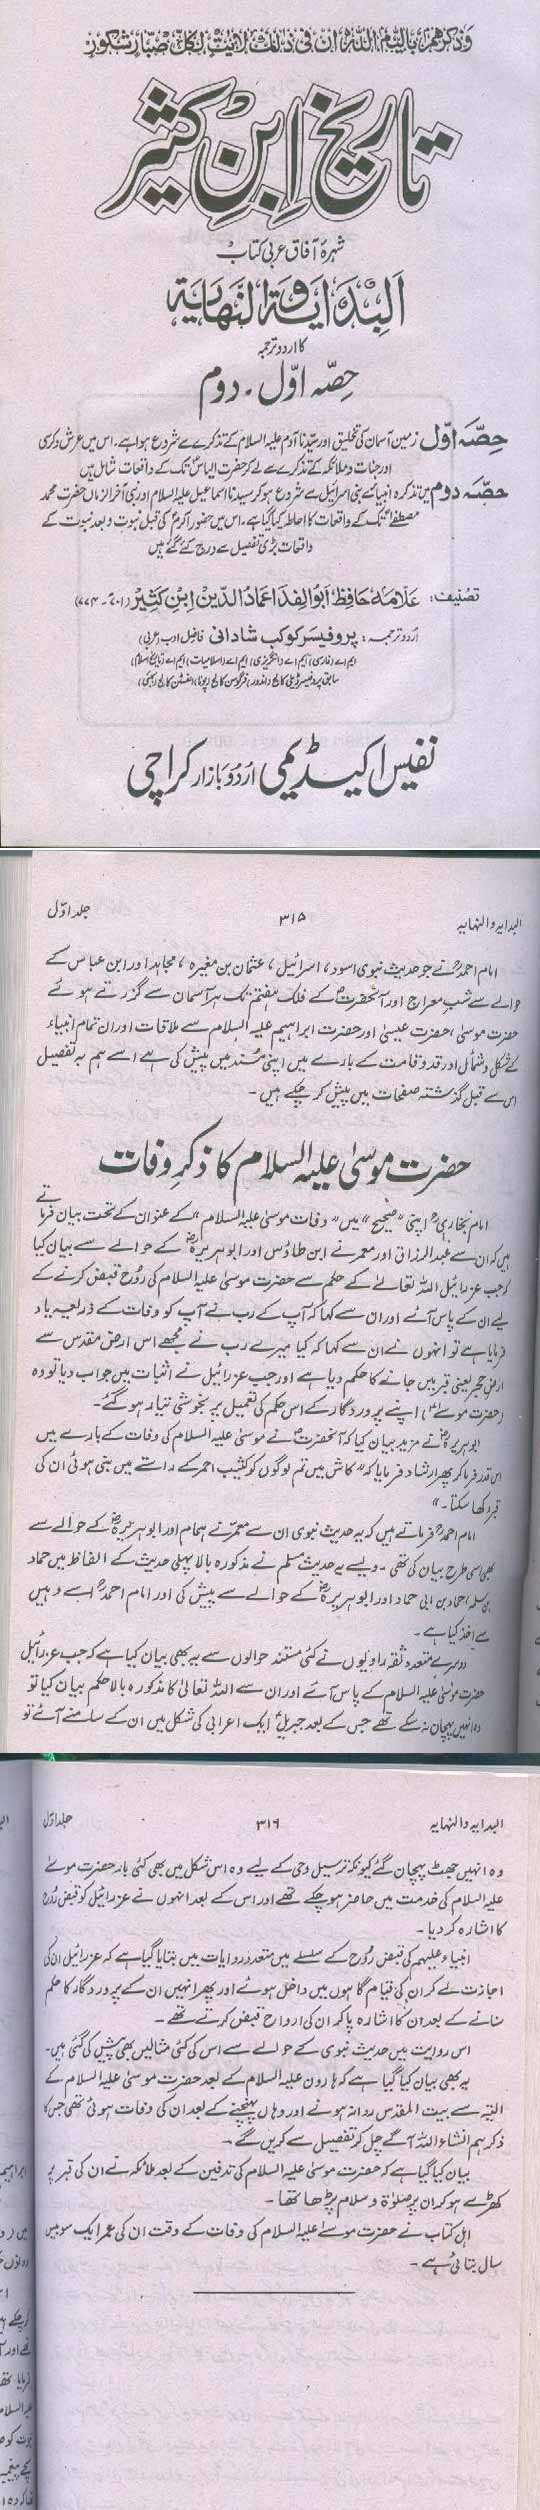 وذكرهم بايام الله ان فى ذلك لايت لكل صبار شكور
تاریخ ابن کثیر
شہرہ آفاق عربی کتاب
البداية والنهاية
کا اردو ترجمہ
حصہ اوّل . دوم
حصہ اوّل زمین آسمان کی تخلیق اور سیدنا آدم علیہ السلام کے تذکرے سے شروع ہوا ہے، اس میں عرش و کرسی
اور جنات و ملائکہ کے تذکرے سے لے کر حضرت الیاس تک کے واقعات شامل ہیں
حصہ دوم میں تذکرہ انبیائے بنی اسرائیل سے شروع ہو کر سیدنا اسماعیل علیہ السلام اور نبی آخر الزماں حضرت محمد
مصطفیٰ تک کے واقعات کا احاطہ کیا گیا ہے، اس میں حضور اکرم کی قبل نبوت و بعد نبوت کے
واقعات بڑی تفصیل سے درج کئے گئے ہیں
تصنیف: علامہ حافظ ابو الفدا عماد الدین ابن کثیر (۷۰۱۔ ۷۷۴)
اردو ترجمہ: پروفیسر کوکب شادانی فاضل ادب (عربی)
ایم اے (فارسی) ایم اے (انگریزی) ایم اے (اسلامیات) ایم اے (تاریخ اسلام)
نفیس اکیڈیمی اردو بازار کراچی
البدایہ والنہایہ ۳۱۵ جلد اوّل
امام احمدؒ نے جو حدیث نبوی اسود، اسرائیل، عثمان بن مغیرہ، مجاہد اور ابن عباس کے
حوالے سے شب معراج اور آنحضرتؐ کے فلک ہفتم تک ہر آسمان سے گزرتے ہوئے
حضرت موسیٰ، حضرت عیسیٰ اور حضرت ابراہیم علیہ السلام سے ملاقات اور ان تمام انبیاء
کے شکل و شمائل اور قد و قامت کے بارے میں اپنی مسند میں پیش کی ہے اسے ہم بہ تفصیل
اس سے قبل گذشتہ صفحات میں پیش کر چکے ہیں۔
حضرت موسیٰ علیہ السلام کا ذکر وفات
امام بخاریؒ اپنی "صحیح" میں "وفات موسیٰ علیہ السلام" کے عنوان کے تحت بیان فرماتے
ہیں کہ ان سے عبدالرزاق اور معمر نے ابن طاؤس اور ابوہریرہؓ کے حوالے سے بیان کیا
کہ جب عزرائیل اللہ تعالیٰ کے حکم سے حضرت موسیٰ علیہ السلام کی روح قبض کرنے کے
لیے ان کے پاس آئے اور ان سے کہا کہ آپ کے رب نے آپ کو وفات کے ذریعہ یاد
فرمایا ہے تو انہوں نے ان سے کہا کہ کیا میرے رب نے مجھے اس ارض مقدس سے
ارض حجر یعنی قبر میں جانے کا حکم دیا ہے اور جب عزرائیل نے اثبات میں جواب دیا تو وہ
(حضرت موسیٰؑ) اپنے پروردگار کے اس حکم کی تعمیل پر بخوشی تیار ہو گئے۔
ابوہریرہؓ نے مزید بیان کیا کہ آنحضرتؐ نے موسیٰ علیہ السلام کی وفات کے بارے میں
اس قدر فرما کر پھر ارشاد فرمایا کہ "کاش میں تم لوگوں کو کثیب احمر کے راستے میں بنی ہوئی ان کی
قبر دکھا سکتا۔"
امام احمدؒ فرماتے ہیں کہ یہ حدیث نبوی ان سے معمر نے ہمام اور ابوہریرہؓ کے حوالے سے
بھی اسی طرح بیان کی تھی۔ ویسے یہ حدیث مسلم نے مذکورہ بالا پہلی حدیث کے الفاظ میں حماد
بن سلمہ احماد بن ابی حماد اور ابوہریرہؓ کے حوالے سے پیش کی اور امام احمدؒ اسے وہیں
سے اخذ کیا ہے۔
دوسرے متعدد ثقہ راویوں نے کئی مستند حوالوں سے یہ بھی بیان کیا ہے کہ جب عزرائیل
حضرت موسیٰ علیہ السلام کے پاس آئے اور ان سے اللہ تعالیٰ کا مذکورہ بالا حکم بیان کیا تو
وہ انہیں پہچان نہ سکے تھے جس کے بعد جبریلؑ ایک اعرابی کی شکل میں ان کے سامنے آئے تو
البدایہ والنہایہ ۳۱۶ جلد اوّل
وہ انہیں جھٹ پہچان گئے کیونکہ ترسیل وحی کے لیے وہ اس شکل میں بھی کئی بار حضرت موسیٰ
علیہ السلام کی خدمت میں حاضر ہو چکے تھے اور اس کے بعد انہوں نے عزرائیل کو قبض روح
کا اشارہ کر دیا۔
انبیاء علیہم کی قبض روح کے سلسلے میں متعدد روایات میں بتایا گیا ہے کہ عزرائیل ان کی
اجازت لے کر ان کی قیام گاہوں میں داخل ہوئے اور پھر انہیں ان کے پروردگار کا حکم
سنانے کے بعد ان کا اشارہ پا کر ان کی ارواح قبض کرتے تھے۔
اس روایت میں حدیث نبوی کے حوالے سے اس کی کئی مثالیں بھی پیش کی گئی ہیں۔
یہ بھی بیان کیا گیا ہے کہ ہارون علیہ السلام کے بعد حضرت موسیٰ علیہ السلام کے
التیہ سے بیت المقدس روانہ ہونے اور وہاں پہنچنے کے بعد ان کی وفات ہوئی تھی جس کا
ذکر ہم انشاء اللہ آگے چل کر تفصیل سے کریں گے۔
بیان کیا گیا ہے کہ حضرت موسیٰ علیہ السلام کی تدفین کے بعد ملائکہ نے ان کی قبر پر
کھڑے ہو کر ان پر صلوٰۃ و سلام پڑھا تھا۔
اہل کتاب نے حضرت موسیٰ علیہ السلام کی وفات کے وقت ان کی عمر ایک سو بیس
سال بتائی ہے۔